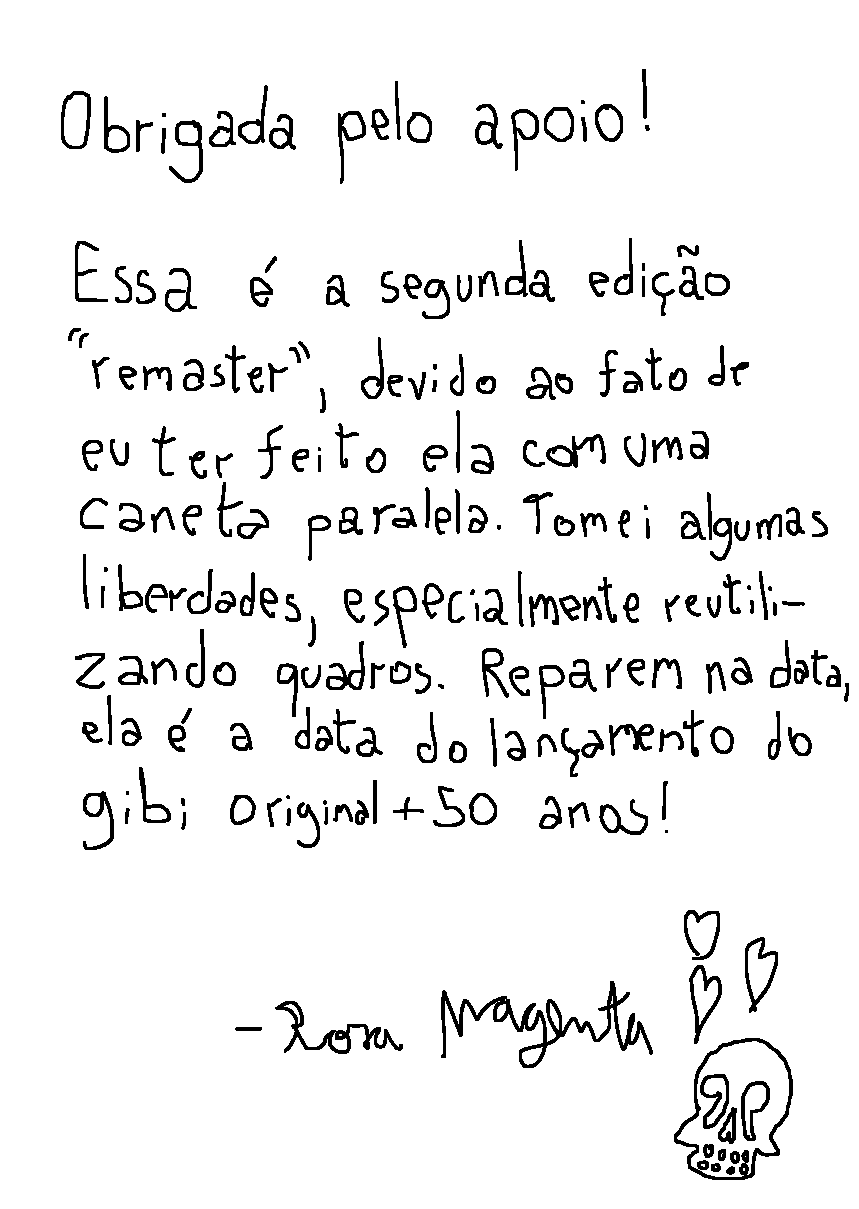 Obrigada pelo apoio!
Essa é a segunda edição
"remaster", devido ao fato de
eu ter feito ela com uma
caneta paralela. Tomei algumas
liberdades, especialmente reutili-
zando quadros. Reparem na data,
ela é a data do lançamento do
gibi original + 50 anos!
- Rosa Magenta